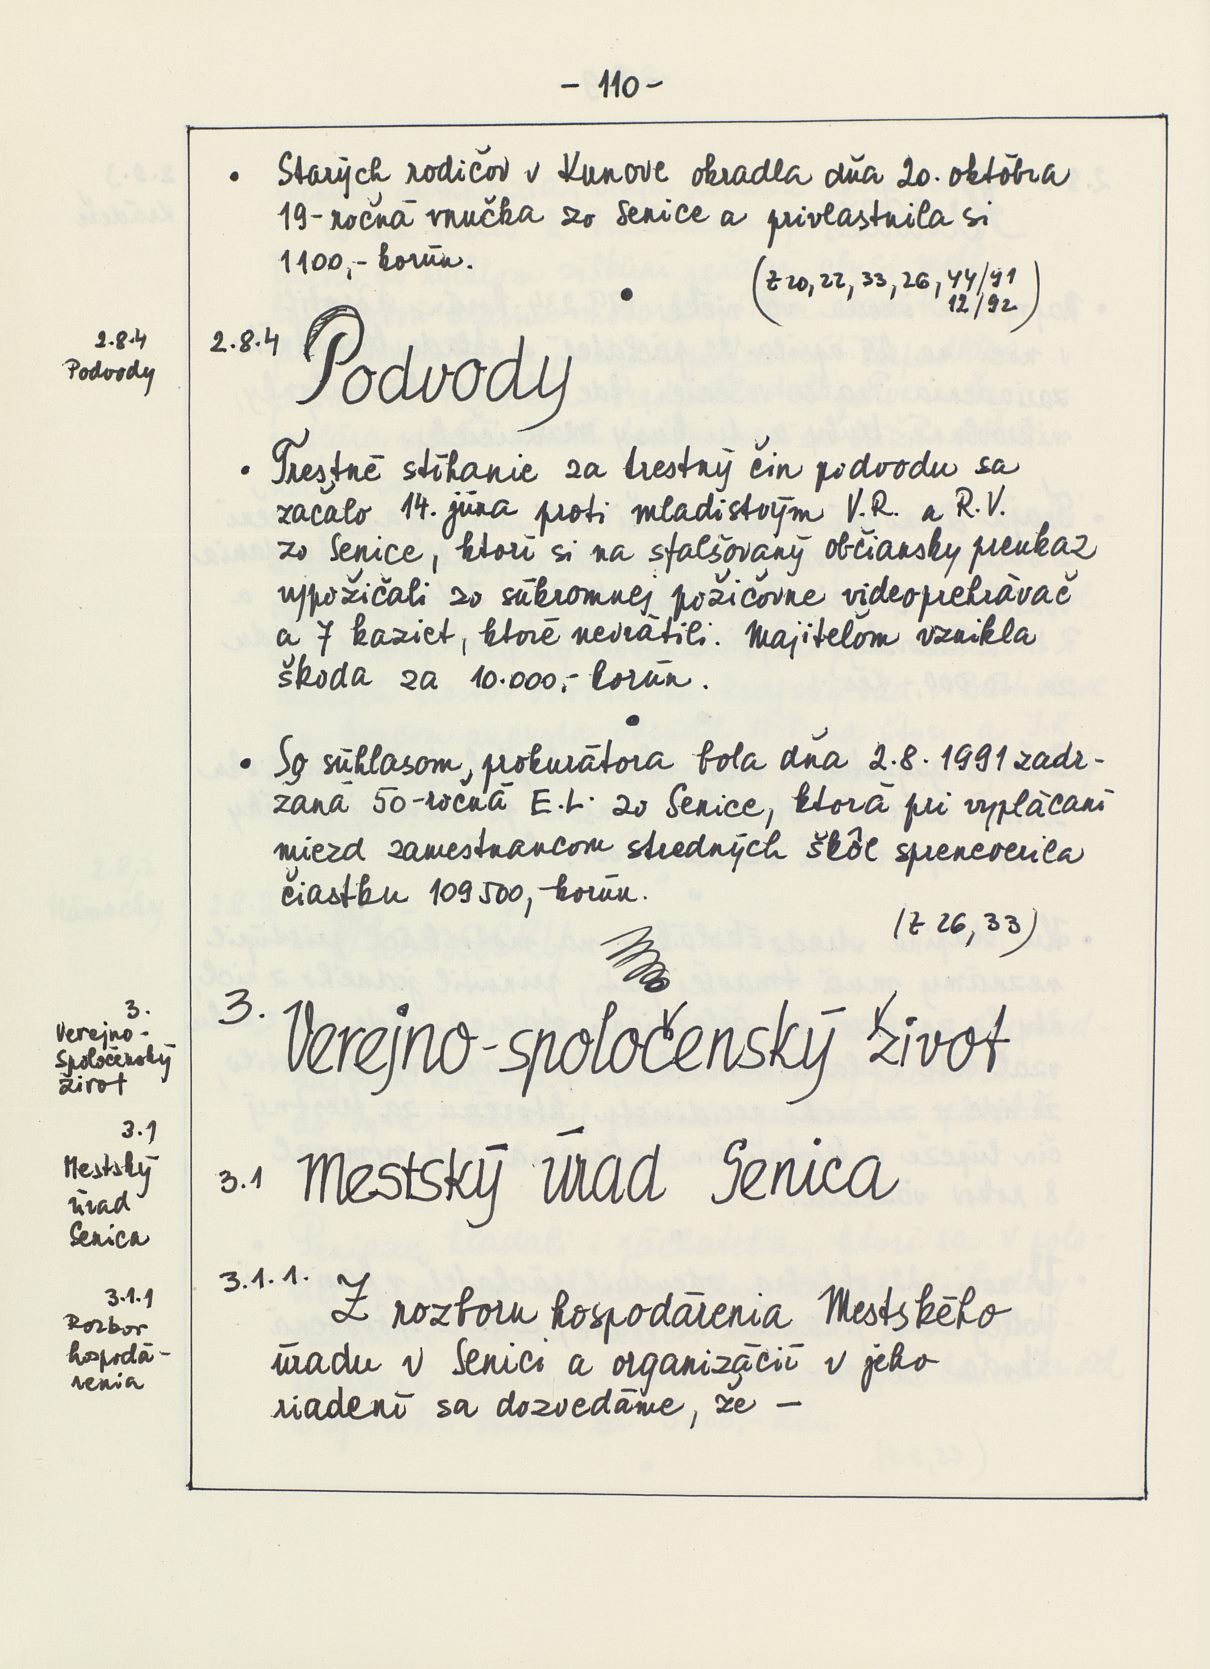 - 110 -
• Starých rodičov v Kunove okradla dňa 20. októbra
19-ročná vnučka zo Senice a privlastnila si
1100,- korún.
(Z 20, 22, 33, 26, 44/91
12/92)
2.8.4
Podvody
2.8.4 Podvody
• Trestné stíhanie za trestný čin podvodu sa
začalo 14. júna proti mladistvým V.R. a R.V.
zo Senice, ktorí si na sfalšovaný občiansky preukaz
vypožičali zo súkromnej požičovne videoprehrávač
a 7 kaziet, ktoré nevrátili. Majiteľom vznikla
škoda za 10.000,- korún.
• So súhlasom, prokurátora bola dňa 2.8.1991 zadr-
žaná 50-ročná E.L. zo Senice, ktorá pri vyplácaní
miezd zamestnancom stredných škôl spreneverila
čiastku 109500,- korún.
(Z 26, 33)
3.
Verejno-
spoločenský
život
3. Verejno-spoločenský život
3.1
Mestský
úrad
Senica
3.1 Mestský úrad Senica
3.1.1
Rozbor
hospodá-
renia
3.1.1. Z rozboru hospodárenia Mestského
úradu v Senici a organizácií v jeho
riadení sa dozvedáme, že —